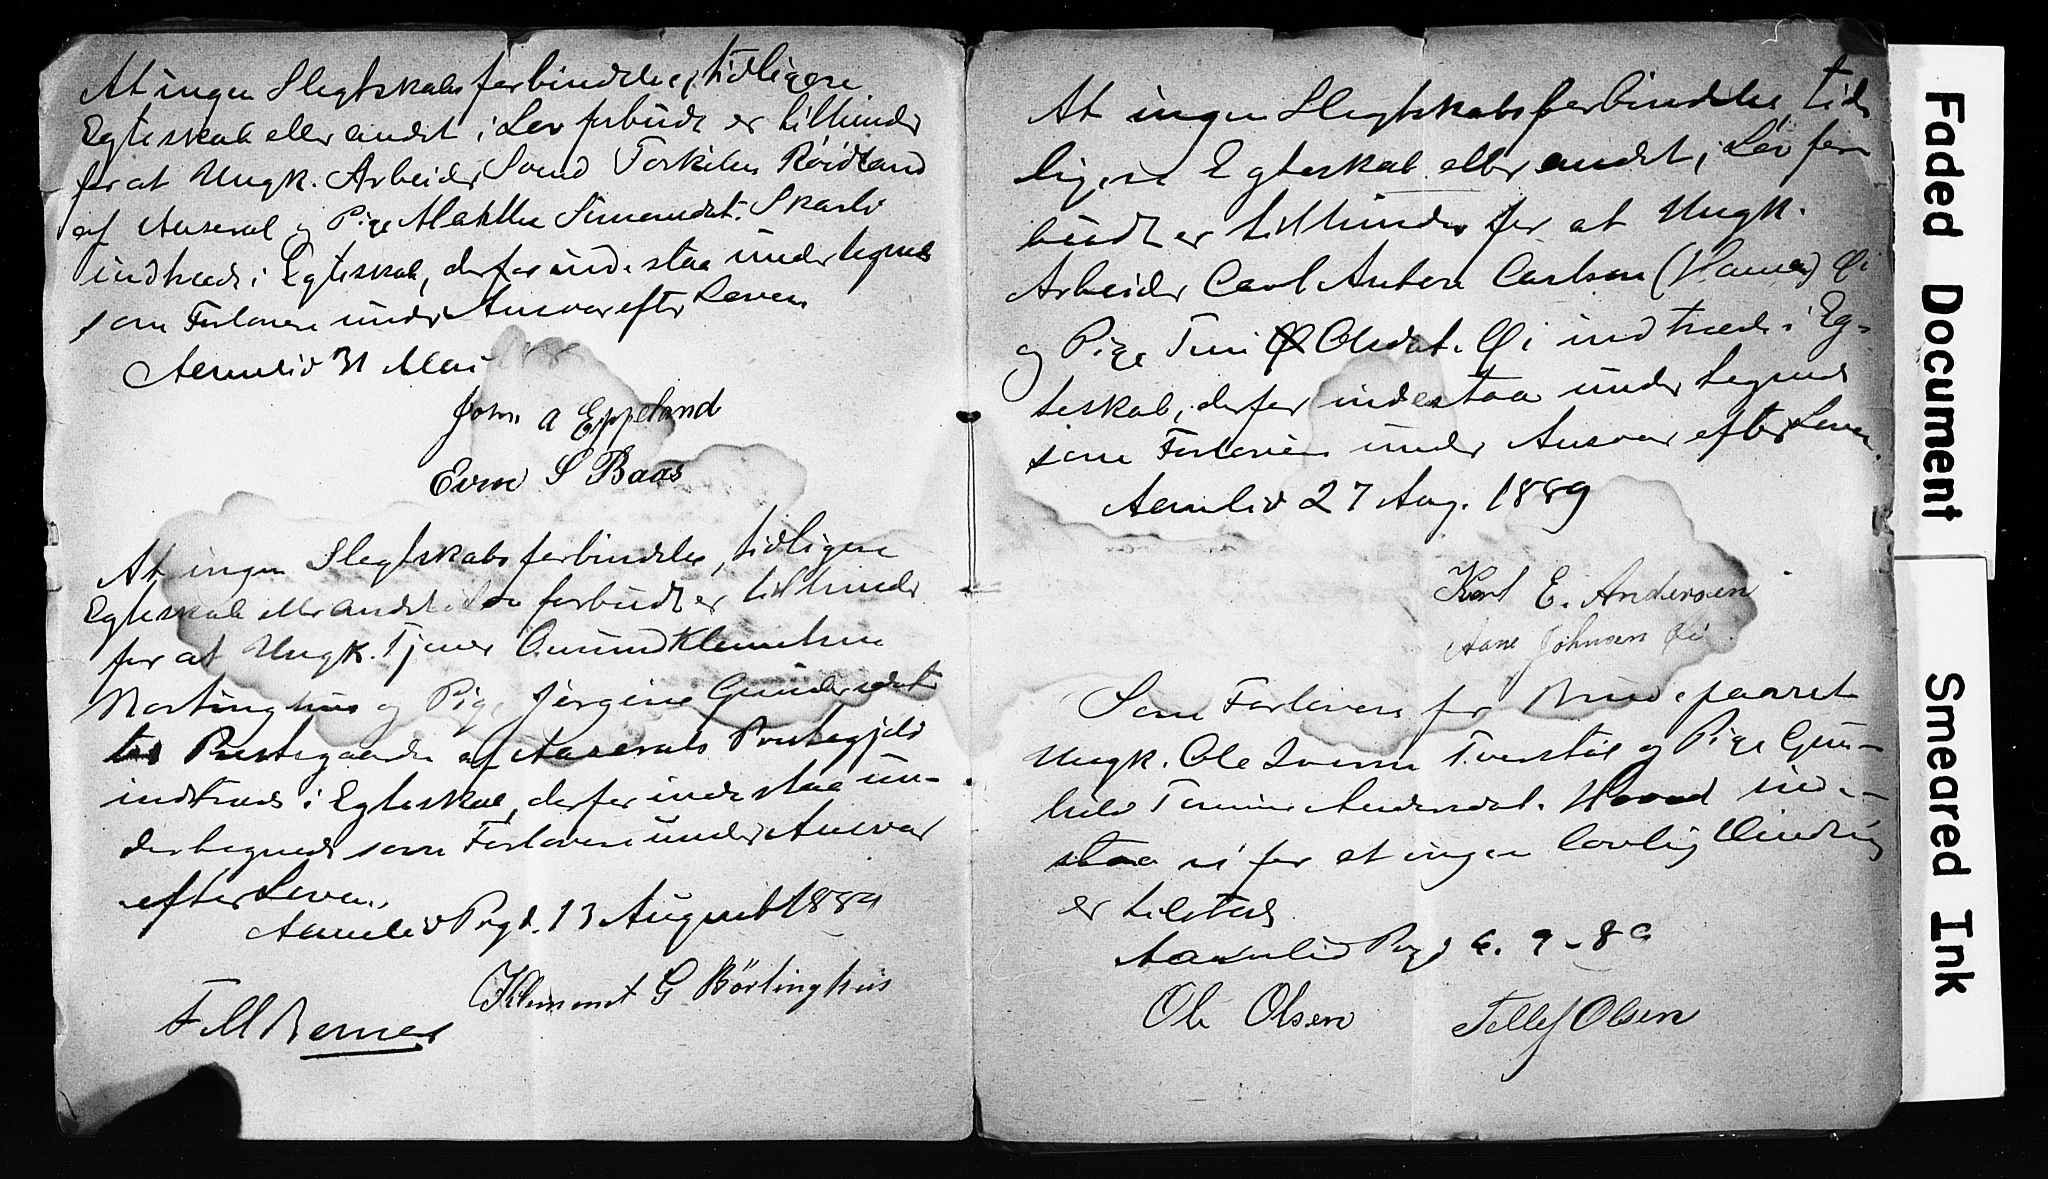 At ingen Slegtskabsforbindelse, tidligere
Egteskab eller andet i Lov forbudt er tilhinder
for at Ungk. Arbeider Svend Torkilsen Röidland
af Aaseral og Pige Mathilde Simonsdat. Skarli
indtræde i Egteskab, derfor inde staa undertegnede
som Forlovere under Ansvar efter Loven
Aamlid 31 Mai
John A Eppeland
Even S Baas
At ingen Slegtskabsforbindelse, tidligere
Egteskab eller andet i Lov forbudt er tilhinder
for at Ungk. Tjener Omund Klemetsen
Nortinghus og Pige Jörgine Gundersdat
Prestegaarden af Aaserals Prestegjeld
indtræde i Egteskab, derfor inde staa un-
dertegnede som Forlovere under Ansvar
efter Loven.
Aamlid Prgd. 13 August 1889
Klemmet G Börtinghus
T. M. Berner
At ingen Slegtskabsforbindelse tid-
ligere Egteskab eller andet i Lov for-
budt er tilhinder for at Ungk.
Arbeider Carl Anton Carlsen (Hanen) Øi
og Pige Tine Olsdat. Øi indtræde i Eg-
teskab, derfor indestaa undertegnede
som Forlovere under Ansvar efter Loven.
Aamlid 27 Aug. 1889
Karl E. Andersen
Aane Johnsen Øi
Som Forlovere for Brudeparret
Ungk. Ole Iversen Tveitöe og Pige Gun-
hild Tomine Andersdat. Hovod inde-
staa vi for at ingen lovlig Hindring
er tilstede
Aamlid Prgd 6. 9 - 89
Ole Olsen Tellef Olsen
Faded Document
Smeared Ink